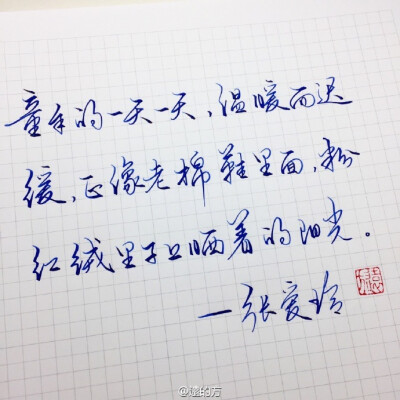 童年的一天一天，温暖而迟
缓，正像老棉鞋里面，粉
红绒里子上晒着的阳光。
—张爱玲
@遠的方